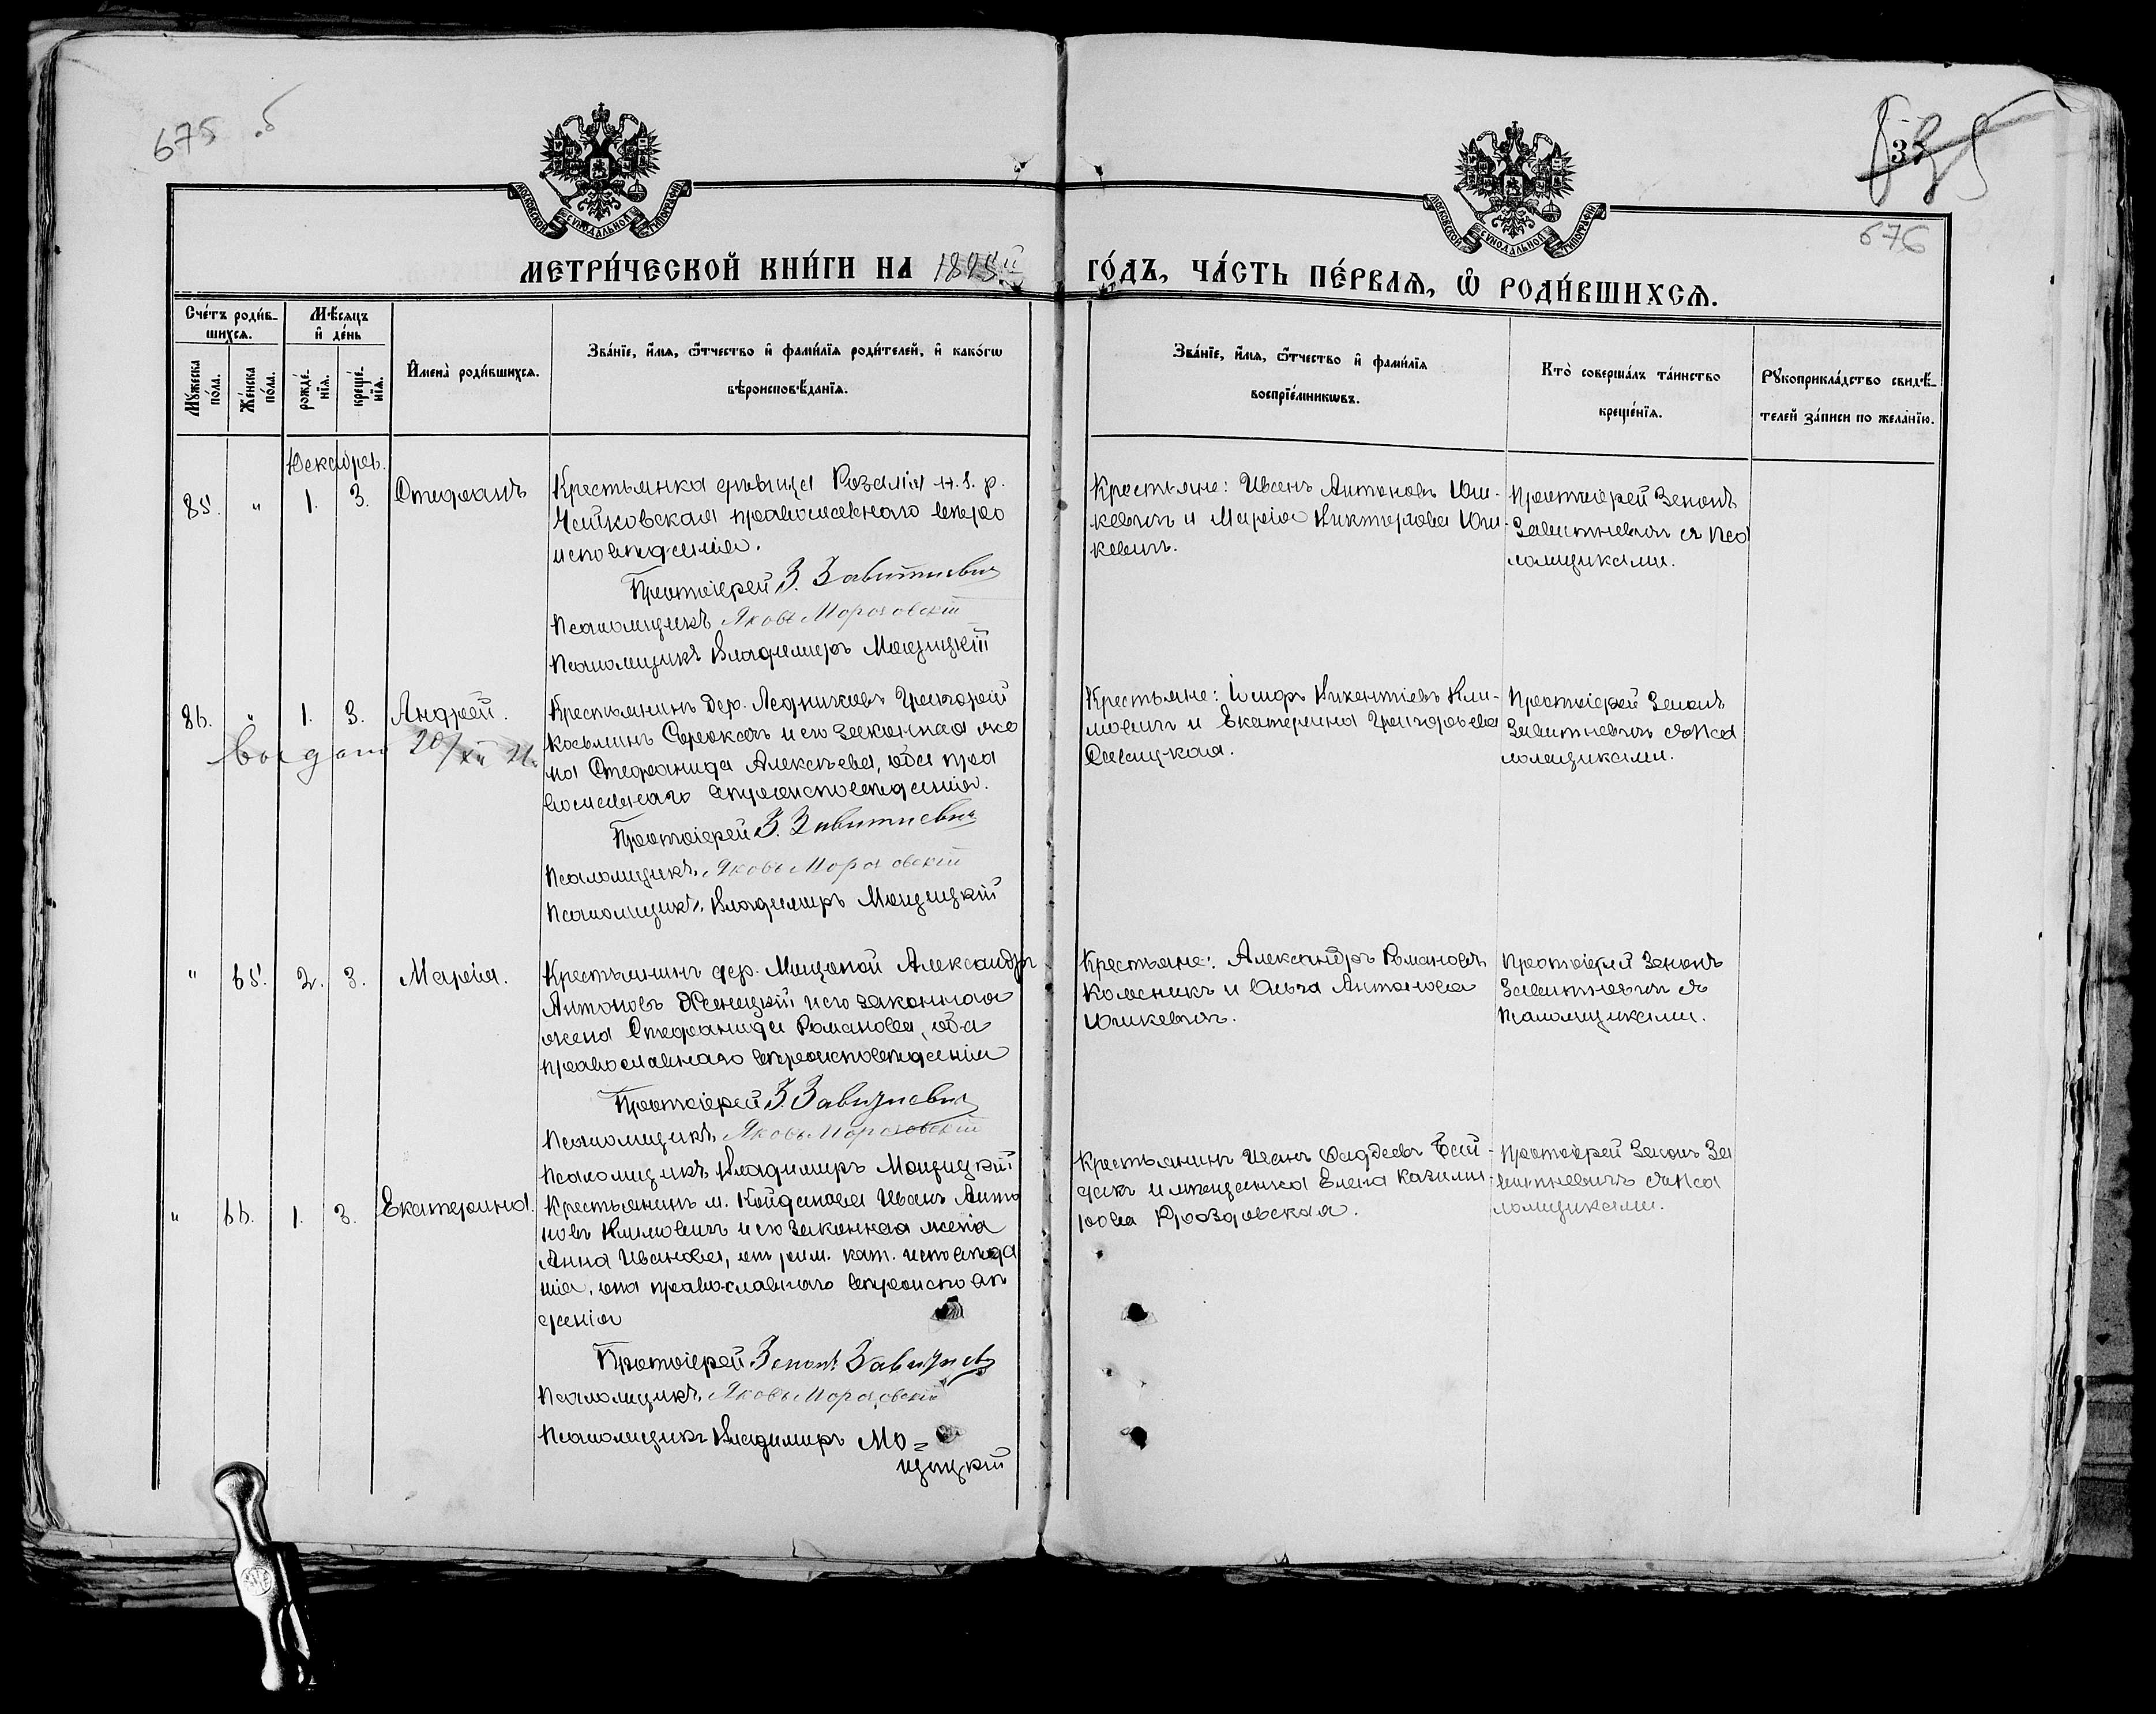 675
676
МОСКОВСКОЙ СѴНОДАЛЬНОЙ ТИПОГРАФІИ
МОСКОВСКОЙ СѴНОДАЛЬНОЙ ТИПОГРАФІИ
МЕТРИ́ЧЕСКОЙ КНИ́ГИ НА
ГО́ДЪ, ЧА́СТЬ ПЕ́РВАѦ, Ѽ РОДИ́ВШИХСѦ.
Сче́тъ роди́в-
шихсѧ.
Мѣ́сѧцъ
и҆ де́нь
Мꙋ́жеска по́ла.
Же́нска по́ла.
рожде́-
нїѧ.
креще́-
нїѧ.
И҆мена̀ роди́вшихсѧ.
Зва́нїе, и҆́мѧ, ѻ҆́тчество и҆ фами́лїѧ роди́телей, и҆ како́гѡ
вѣроисповѣ́данїѧ.
Зва́нїе, и҆́мѧ, ѻ҆́тчество и҆ фами́лїѧ
воспрїе́мникѡвъ.
Кто̀ соверша́лъ та́инство
креще́нїѧ.
Рꙋкоприкла́дство свидѣ́-
телей за́писи по жела́нїю.
Декабрь.
85. " 1. 3. Стефанъ
Крестьянка дѣвица Розалія
Чайковская православнаго вѣро
исповѣданія.
Протоіерей З. Завитневичъ
Псаломщикъ Яковъ Морозовскій
Псаломщикъ Владимиръ Мощицкій
Крестьяне: Иванъ Антоновъ Юш-
кевичъ и Марія Викторова Юш-
кевичъ.
Протоіерей Зенонъ
Завитневичъ съ Пса
ломщиками.
86. " 1. 3. Андрей.
выдано 20/XII 21.
Крестьянинъ дер. Ледниковъ Григорій
Косьминъ Сорокачъ и его законная же
на Стефанида Алексѣева, оба пра
вославнаго вѣроисповѣданія.
Протоіерей З. Завитневичъ
Псаломщикъ Яковъ Морозовскій
Псаломщикъ Владимиръ Мощицкій
Крестьяне: Іосифъ Викентіевъ Кли-
мовичъ и Екатерина Григорьева
Савицкая.
Протоіерей Зенонъ
Завитневичъ съ Пса
ломщиками.
" 65. 2. 3. Марія.
Крестьянинъ дер. Мищоной Александръ
Антоновъ Женецкій и его законная
жена Стефанида Романова, оба
православнаго вѣроисповѣданія
Протоіерей З. Завитневичъ
Псаломщикъ Яковъ Морозовскій
Псаломщикъ Владимиръ Мощицкій
Крестьяне: Александръ Романовъ
Колесникъ и Ольга Антонова
Юшкевичъ.
Протоіерей Зенонъ
Завитневичъ съ
Псаломщиками.
" 66. 1. 3. Екатерина.
Крестьянинъ м. Койданова Иванъ Анто
новъ Климовичъ и его законная жена
Анна Иванова, онъ рим. кат. исповѣда
нія, она православнаго вѣроисповѣ
данія
Протоіерей Зенонъ Завитневичъ
Псаломщикъ Яковъ Морозовскій
Псаломщикъ Владимиръ Мо=
щицкій
Крестьянинъ Иванъ Фаддеевъ Бай-
дакъ и мѣщанка Елена Казими-
рова Дроздовская.
Протоіерей Зенонъ За
витневичъ съ Пса
ломщиками.